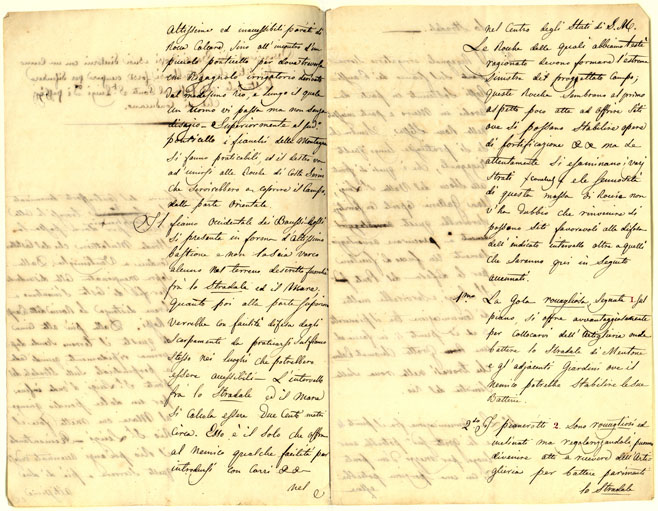 altissime ed inaccessibili pareti di
Roca Colzard, sino all'incontro d'un
piccolo ponticello per dove traversa
un Bagnolo irrigatorio derivante
dal medesimo rio, e lungo il quale
un uomo vi passa ma non senza
disagio – Superiormente al sud.°
ponticello i fianchi delle Montagne
si fanno praticabili, ed il destro va
ad unirsi alle Roche di
che servirebbero a coprire il Campo
dalla parte Orientale.
Il fianco Occidentale dei Baussi Rossi
si presenta in forma d'altissimo
Bastione e non lascia varco
alcuno nel terreno descritto
fra lo Stradale ed il Mare.
Quanto poi alla parte Superiore
verrebbe con facilità difesa dagli
scarpamenti da praticarsi sul fianco
stesso nei luoghi che potrebbero
essere accessibili – L'intervallo
fra lo Stradale ed il Mare
si calcola essere due Cento metri
circa. Esso è il solo che offra
al Nemico qualche facilità per
introdursi con Carri &&
nel
nel Centro degli Stati di S. M.
Le Roche delle quali abbiamo
ragionato devono formare l'estrema
Sinistra del progettato Campo;
queste Roche sembrano al primo
aspetto poco atte ad offrire siti
ove si possano stabilire opere
di fortificazione && ma se
attentamente si esaminano i varj
strati e le sinuosità
di questa massa di Rocia non
v'ha dubbio che rinvenire si
possano siti favorevoli alla difesa
dell'indicato intervallo oltre a quelli
che saranno qui in seguito
accennati.
1mo La Gola rocagliosa segnata 1. sul
piano si offre avvantaggiosamente
per collocarvi dell'Artiglieria onde
battere lo Stradale di Mentone
e gl'adjacenti Giardini ove il
Nemico potrebbe stabilire le sue
Batterie.
2do I pianerotti 2 sono rocagliosi ed
inclinati ma regolarizzandoli possono
divenire atti a ricevere dell'Arti-
glieria per battere parimenti
lo Stradale